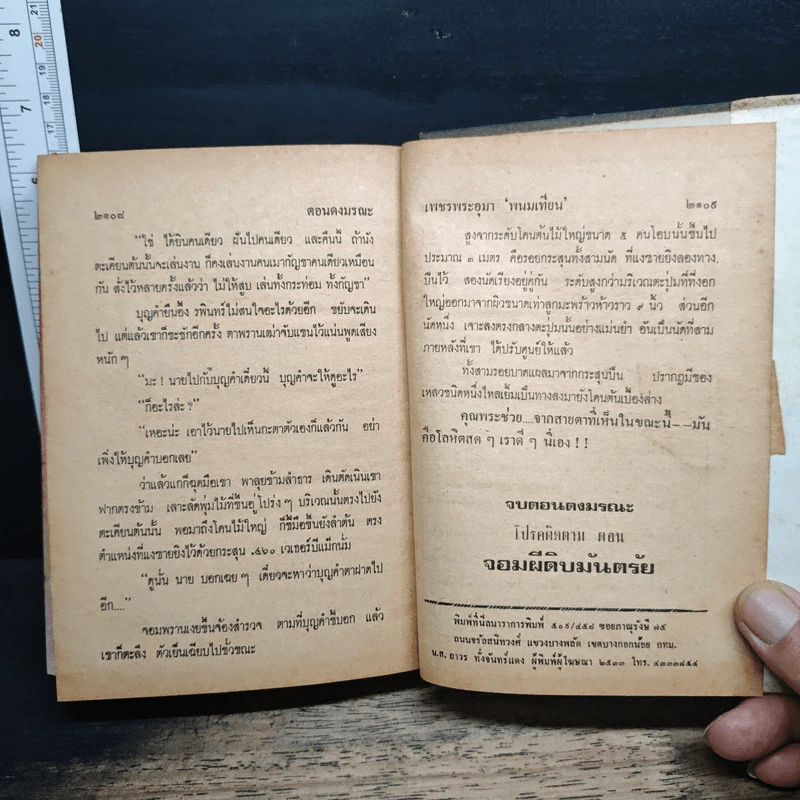 8
7
21
20
19
18
17
๒๑๐๘ ตอนดงมรณะ
“ใช่ ได้ยินคนเดียว ฝันไปคนเดียว และคืนนี้ ถ้านัง
ตะเคียนต้นนั้นจะเล่นงาน ก็คงเล่นงานคนเมากัญชาคนเดียวเหมือน
กัน สั่งไว้หลายครั้งแล้วว่า ไม่ให้สูบ เล่นทั้งกระท่อม ทั้งกัญชา”
บุญคำยืนอึ้ง รพินทร์ไม่สนใจอะไรด้วยอีก ขยับจะเดิน
ไป แต่แล้วเขาก็ชะงักอีกครั้ง ตาพรานเฒ่าจับแขนไว้แน่นพูดเสียง
หนัก ๆ
“มะ ! นายไปกับบุญคำเดี๋ยวนี้ บุญคำจะให้ดูอะไร”
“ก็อะไรล่ะ ?”
“เหอะน่ะ เอาไว้นายไปเห็นกะตาตัวเองก็แล้วกัน อย่า
เพิ่งให้บุญคำบอกเลย”
ว่าแล้วแกก็ฉุดมือเขา พาลุยข้ามลำธาร เดินตัดเนินเขา
ฟากตรงข้าม เลาะลัดพุ่มไม้ที่ขึ้นอยู่โปร่ง ๆ บริเวณนั้นตรงไปยัง
ตะเคียนต้นนั้น พอมาถึงโคนไม้ใหญ่ ก็ชี้มือขึ้นยังลำต้น ตรง
ตำแหน่งที่แงซายยิงไว้ด้วยกระสุน .๔๖๐ เวเธอร์บีแม็กนั่ม
“ดูนั่น นาย บอกเฉย ๆ เดี๋ยวจะหาว่าบุญคำตาฝาดไป
อีก....”
จอมพรานเงยขึ้นจ้องสำรวจ ตามที่บุญคำชี้บอก แล้ว
เขาก็ตะลึง ตัวเย็นเฉียบไปชั่วขณะ
เพชรพระอุมา ‘พนมเทียน’ ๒๑๐๙
สูงจากระดับโคนต้นไม้ใหญ่ขนาด ๕ คนโอบนั้นขึ้นไป
ประมาณ ๓ เมตร คือรอยกระสุนทั้งสามนัด ที่แงซายยิงลองทาง
ปืนไว้ สองนัดเรียงอยู่คู่กัน ระดับสูงกว่าบริเวณตะปุ่มที่ที่งอก
ใหญ่ออกมาจากผิวขนาดเท่าลูกมะพร้าวห้าวราว ๙ นิ้ว ส่วนอีก
นัดหนึ่ง เจาะลงตรงกลางตะปุ่มนั้นอย่างแม่นยำ อันเป็นนัดที่สาม
ภายหลังที่เขา ได้ปรับศูนย์ให้แล้ว
ทั้งสามรอยบาดแผลมาจากกระสุนปืน ปรากฏมีของ
เหลวชนิดหนึ่งไหลเยิ้มเป็นทางลงมายังโคนต้นเบื้องล่าง
คุณพระช่วย....จากสายตาที่เห็นในขณะนี้--มัน
คือโลหิตสด ๆ เราดี ๆ นี่เอง ! !
จบตอนดงมรณะ
โปรดติดตาม ตอน
จอมผีดิบมันตรัย
พิมพ์ที่นีลนาราการพิมพ์ ๕๐๙/๔๕๘ ซอยภาณุรังษี ๗๕
ถนนจรัลสนิทวงศ์ แขวงบางพลัด เขตบางกอกน้อย กทม.
น.ส. ถาวร ทั่งจันทร์แดง ผู้พิมพ์ผู้โฆษณา ๒๕๓๓ โทร. ๔๓๓๓๘๕๔